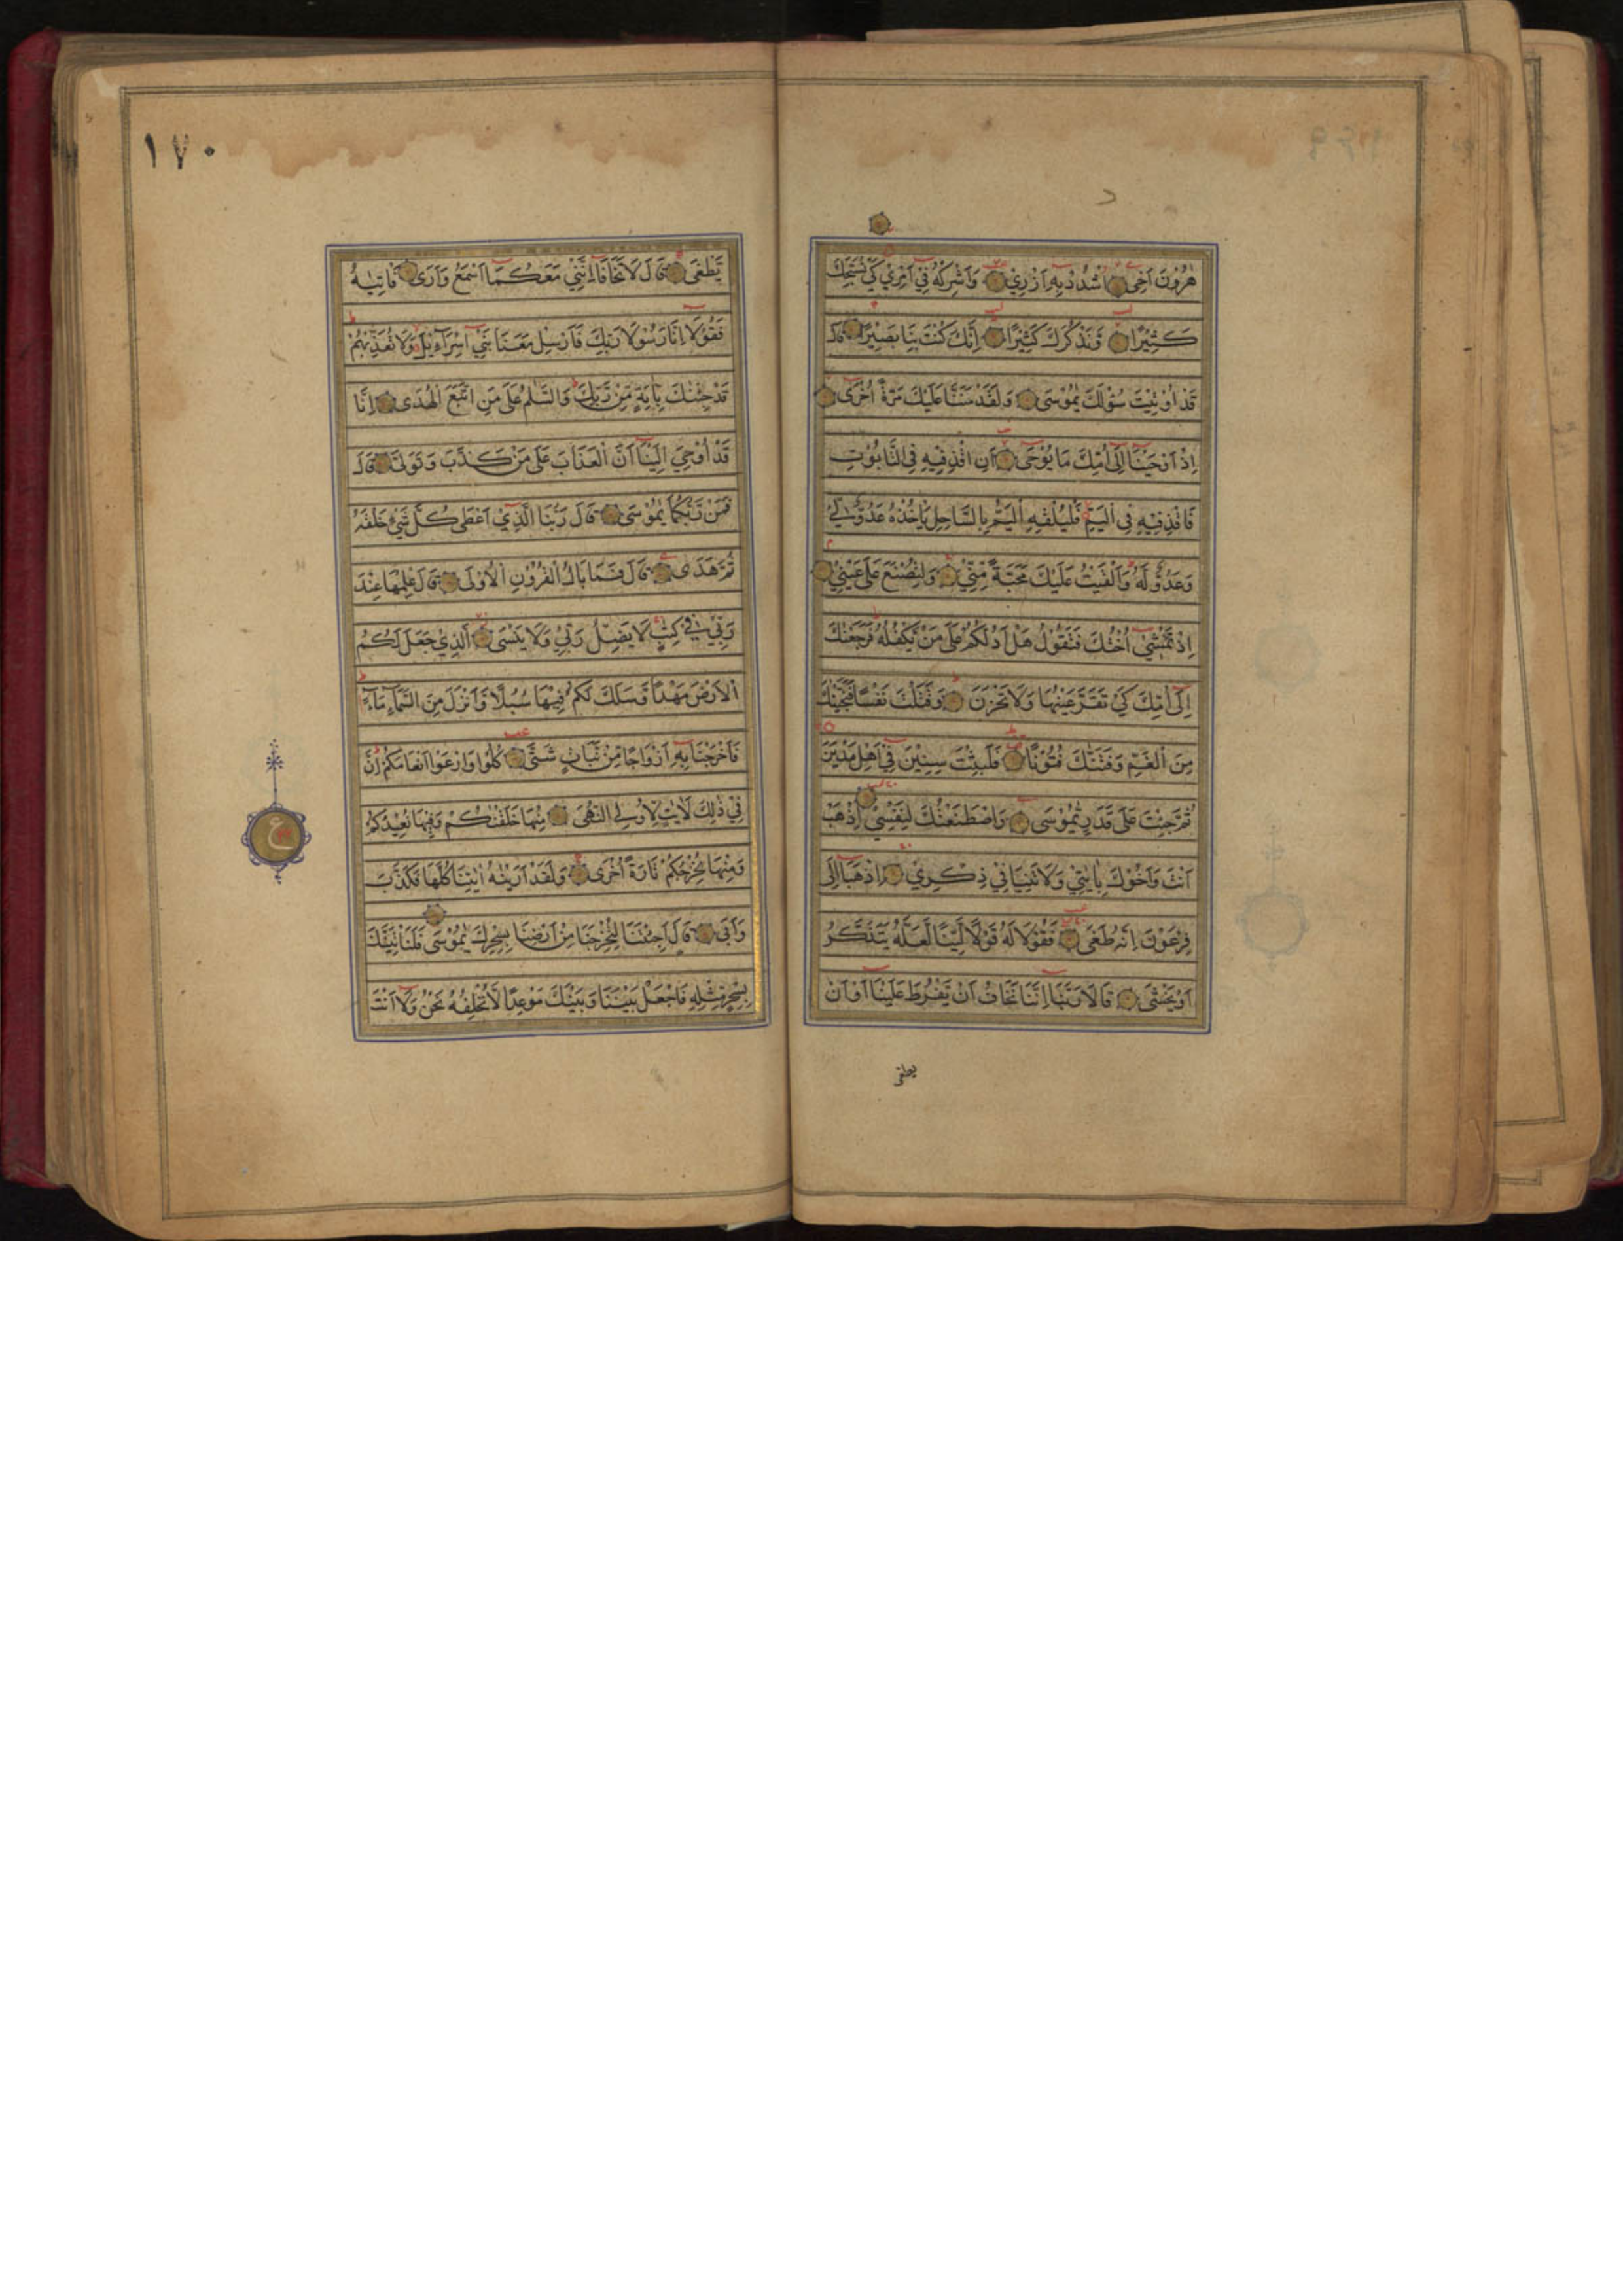 هٰرُوْنَ اَخِى اشْدُدْ بِهٖ اَزْرِيْ وَاَشْرِكْهُ فِيْ اَمْرِيْ كَيْ نُسَبِّحَكَ
كَثِيْرًا وَنَذْكُرَكَ كَثِيْرًا اِنَّكَ كُنْتَ بِنَا بَصِيْرًا قَالَ
قَدْ اُوْتِيْتَ سُؤْلَكَ يٰمُوْسَى وَلَقَدْ مَنَنَّا عَلَيْكَ مَرَّةً اُخْرَى
اِذْ اَوْحَيْنَا اِلَى اُمِّكَ مَا يُوْحَى اَنِ اقْذِفِيْهِ فِى التَّابُوْتِ
فَاقْذِفِيْهِ فِى الْيَمِّ فَلْيُلْقِهِ الْيَمُّ بِالسَّاحِلِ يَاْخُذْهُ عَدُوٌّ لِيْ
وَعَدُوٌّ لَهُ وَاَلْقَيْتُ عَلَيْكَ مَحَبَّةً مِّنِّيْ وَلِتُصْنَعَ عَلَى عَيْنِيْ
اِذْ تَمْشِيْ اُخْتُكَ فَتَقُوْلُ هَلْ اَدُلُّكُمْ عَلَى مَنْ يَّكْفُلُهُ فَرَجَعْنٰكَ
اِلَى اُمِّكَ كَيْ تَقَرَّ عَيْنُهَا وَلَا تَحْزَنَ وَقَتَلْتَ نَفْسًا فَنَجَّيْنٰكَ
مِنَ الْغَمِّ وَفَتَنّٰكَ فُتُوْنًا فَلَبِثْتَ سِنِيْنَ فِيْ اَهْلِ مَدْيَنَ
ثُمَّ جِئْتَ عَلَى قَدَرٍ يّٰمُوْسَى وَاصْطَنَعْتُكَ لِنَفْسِيْ اِذْهَبْ
اَنْتَ وَاَخُوْكَ بِاٰيٰتِيْ وَلَا تَنِيَا فِيْ ذِكْرِيْ اِذْهَبَا اِلَى
فِرْعَوْنَ اِنَّهُ طَغَى فَقُوْلَا لَهُ قَوْلًا لَّيِّنًا لَّعَلَّهُ يَتَذَكَّرُ
اَوْ يَخْشَى قَالَا رَبَّنَا اِنَّنَا نَخَافُ اَنْ يَّفْرُطَ عَلَيْنَا اَوْ اَنْ
يطغى
١٧٠
يَّطْغَى قَالَ لَا تَخَافَا اِنَّنِيْ مَعَكُمَا اَسْمَعُ وَاَرَى فَاْتِيٰهُ
فَقُوْلَا اِنَّا رَسُوْلَا رَبِّكَ فَاَرْسِلْ مَعَنَا بَنِيْ اِسْرَآءِيْلَ وَلَا تُعَذِّبْهُمْ
قَدْ جِئْنٰكَ بِاٰيَةٍ مِّنْ رَّبِّكَ وَالسَّلٰمُ عَلَى مَنِ اتَّبَعَ الْهُدَى اِنَّا
قَدْ اُوْحِيَ اِلَيْنَا اَنَّ الْعَذَابَ عَلَى مَنْ كَذَّبَ وَتَوَلَّى قَالَ
فَمَنْ رَّبُّكُمَا يٰمُوْسَى قَالَ رَبُّنَا الَّذِيْ اَعْطَى كُلَّ شَيْءٍ خَلْقَهُ
ثُمَّ هَدَى قَالَ فَمَا بَالُ الْقُرُوْنِ الْاُوْلَى قَالَ عِلْمُهَا عِنْدَ
رَبِّيْ فِيْ كِتٰبٍ لَا يَضِلُّ رَبِّيْ وَلَا يَنْسَى الَّذِيْ جَعَلَ لَكُمُ
الْاَرْضَ مَهْدًا وَّسَلَكَ لَكُمْ فِيْهَا سُبُلًا وَّاَنْزَلَ مِنَ السَّمَآءِ مَآءً
فَاَخْرَجْنَا بِهٖ اَزْوَاجًا مِّنْ نَّبَاتٍ شَتَّى كُلُوْا وَارْعَوْا اَنْعَامَكُمْ اِنَّ
فِيْ ذٰلِكَ لَاٰيٰتٍ لِّاُولِى النُّهَى مِنْهَا خَلَقْنٰكُمْ وَفِيْهَا نُعِيْدُكُمْ
وَمِنْهَا نُخْرِجُكُمْ تَارَةً اُخْرَى وَلَقَدْ اَرَيْنٰهُ اٰيٰتِنَا كُلَّهَا فَكَذَّبَ
وَاَبَى قَالَ اَجِئْتَنَا لِتُخْرِجَنَا مِنْ اَرْضِنَا بِسِحْرِكَ يٰمُوْسَى فَلَنَاْتِيَنَّكَ
بِسِحْرٍ مِّثْلِهٖ فَاجْعَلْ بَيْنَنَا وَبَيْنَكَ مَوْعِدًا لَّا نُخْلِفُهُ نَحْنُ وَلَا اَنْتَ
ع